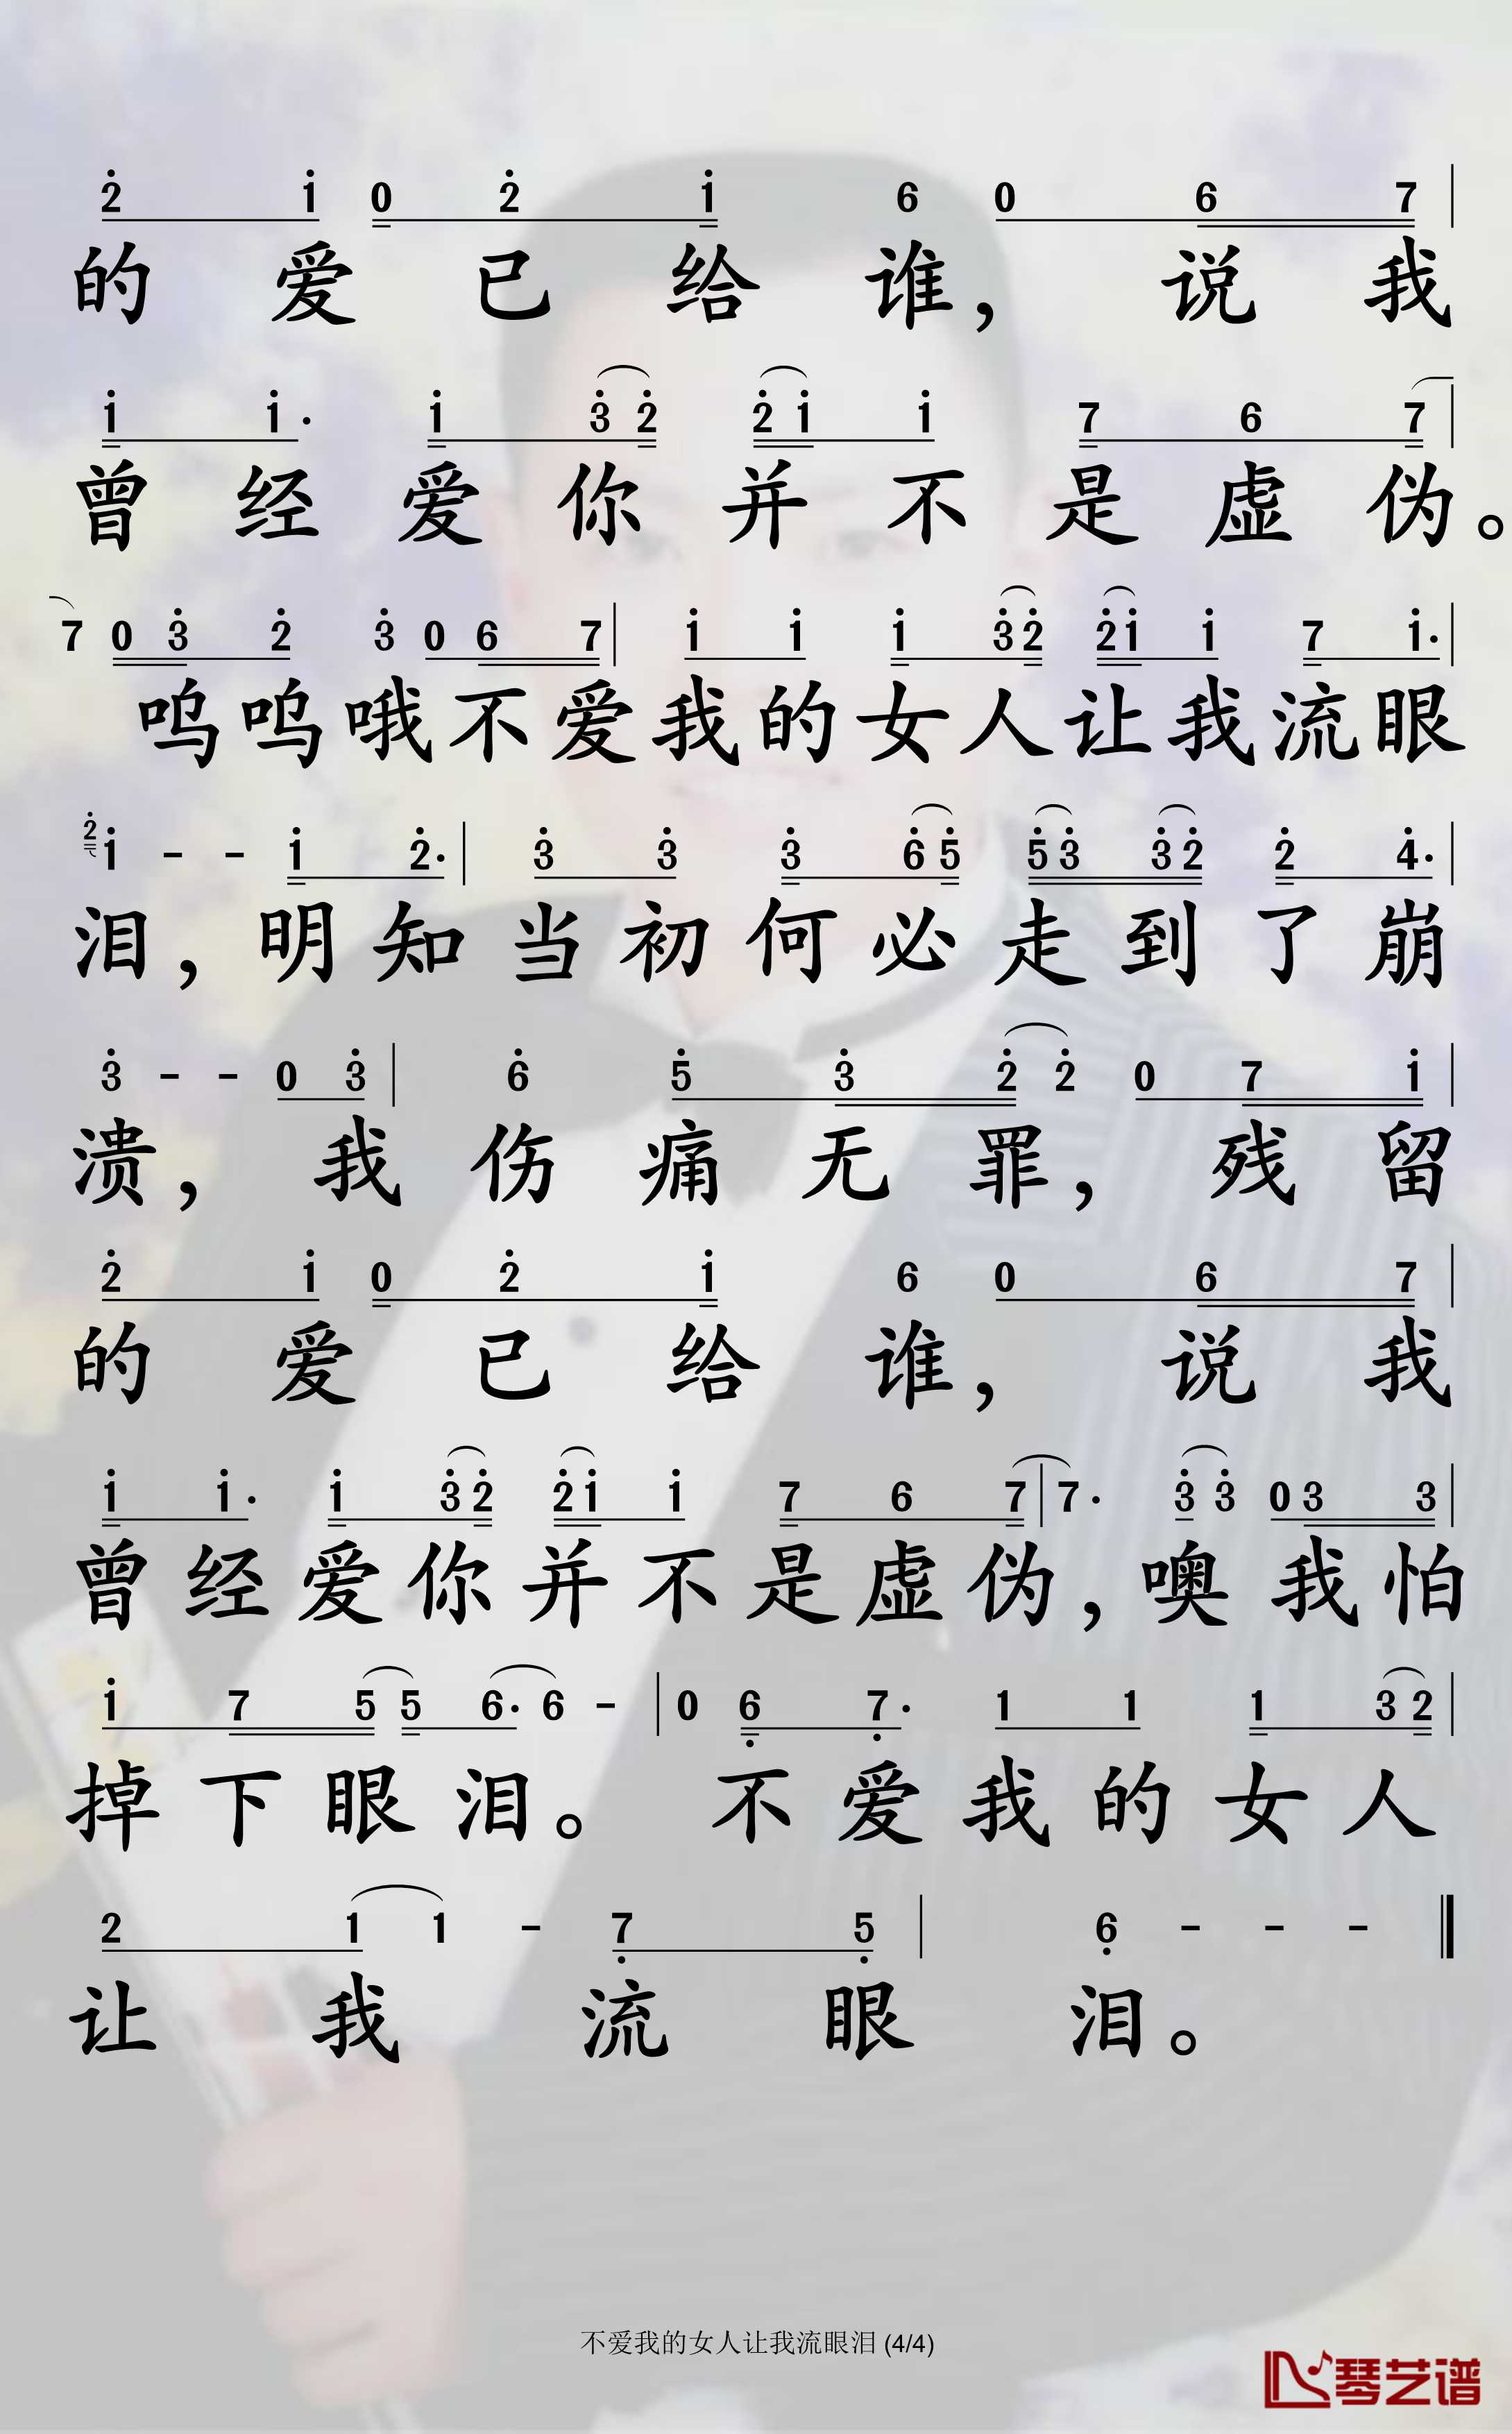 2̇ 1̇ 0 2̇ 1̇ 6 0 6 7 |
的 爱 已 给 谁， 说 我
1̇ 1̇· 1̇ 3̇ 2̇ 2̇ 1̇ 1̇ 7 6 7 |
曾 经 爱 你 并 不 是 虚 伪。
7 0 3̇ 2̇ 3̇ 0 6 7 | 1̇ 1̇ 1̇ 3̇ 2̇ 2̇ 1̇ 1̇ 7 1̇· |
呜 呜 哦 不 爱 我 的 女 人 让 我 流 眼
2̇ 1̇ - - 1̇ 2̇· | 3̇ 3̇ 3̇ 6̇ 5̇ 5̇ 3̇ 3̇ 2̇ 2̇ 4̇· |
泪， 明 知 当 初 何 必 走 到 了 崩
3̇ - - 0 3̇ | 6̇ 5̇ 3̇ 2̇ 2̇ 0 7 1̇ |
溃， 我 伤 痛 无 罪， 残 留
2̇ 1̇ 0 2̇ 1̇ 6 0 6 7 |
的 爱 已 给 谁， 说 我
1̇ 1̇· 1̇ 3̇ 2̇ 2̇ 1̇ 1̇ 7 6 7 | 7· 3̇ 3̇ 0 3 3 |
曾 经 爱 你 并 不 是 虚 伪， 噢 我 怕
1̇ 7 5 5 6· 6 - | 0 6̣ 7̣· 1 1 1 3 2 |
掉 下 眼 泪。 不 爱 我 的 女 人
2 1 1 - 7̣ 5̣ | 6̣ - - - ‖
让 我 流 眼 泪。
不爱我的女人让我流眼泪 (4/4)
琴艺谱